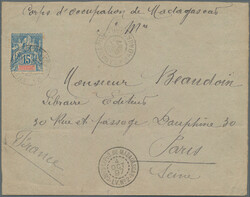 Corps d'occupation de Madagascar
15
Monsieur Beaudoin
Libraire Editeur
30 Rue et passage Dauphine 30
Paris
Seine
France